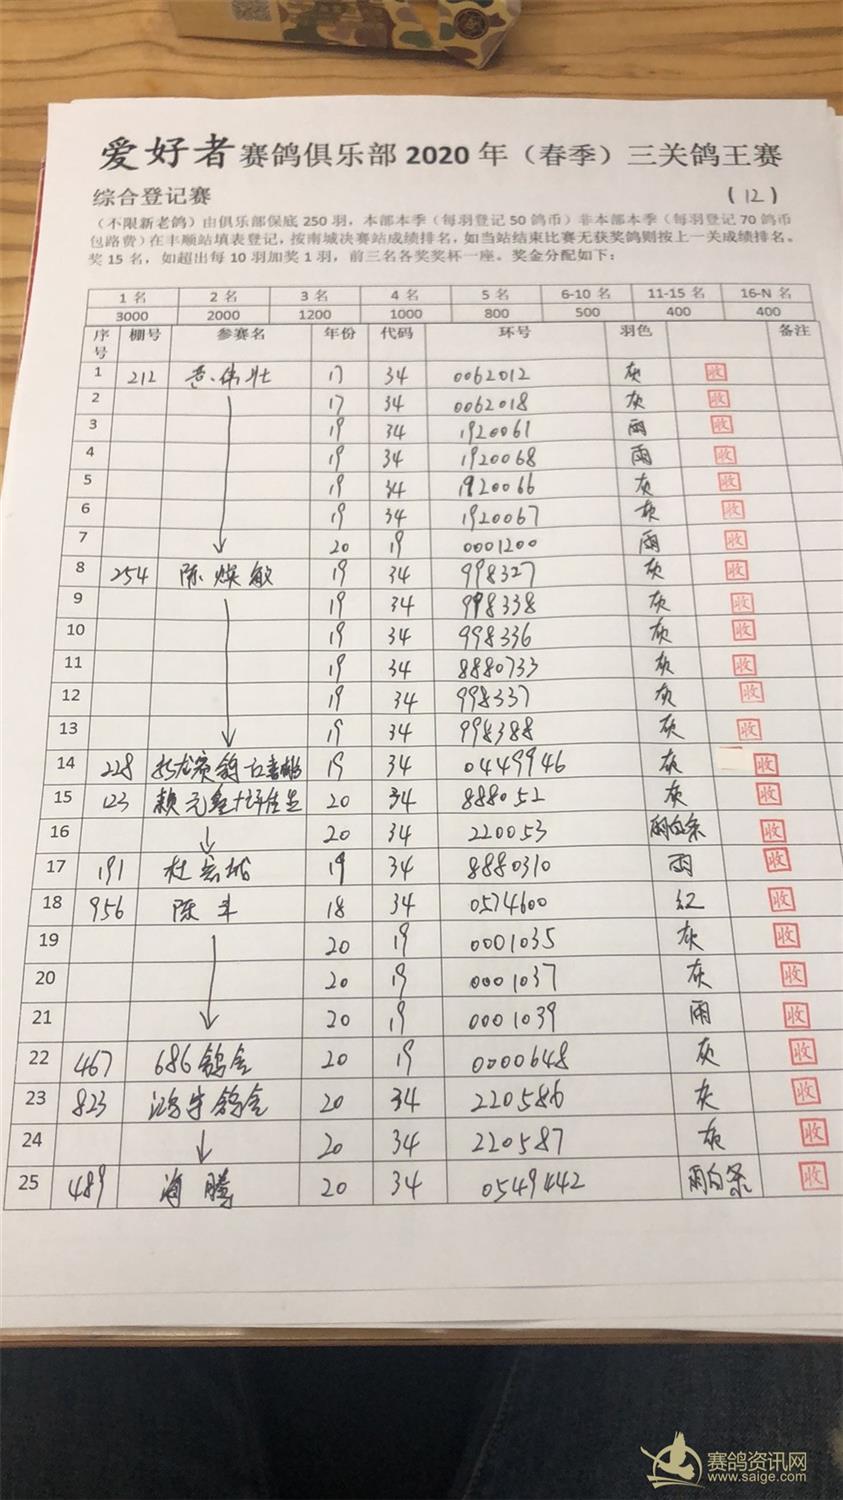 爱好者赛鸽俱乐部2020年（春季）三关鸽王赛
综合登记赛 （12）
（不限新老鸽）由俱乐部保底250羽，本部本季（每羽登记50鸽币）非本部本季（每羽登记70鸽币
包路费）在丰顺站填表登记，按南城决赛站成绩排名，如当站结束比赛无获奖鸽则按上一关成绩排名。
奖15名，如超出每10羽加奖1羽，前三名各奖奖杯一座。奖金分配如下：
1名 2名 3名 4名 5名 6-10名 11-15名 16-N名
3000 2000 1200 1000 800 500 400 400
序号 棚号 参赛名 年份 代码 环号 羽色 备注
1 212 黄伟壮 17 34 0062012 灰 收
2 17 34 0062018 灰 收
3 19 34 1920061 雨 收
4 19 34 1920068 雨 收
5 19 34 1920066 灰 收
6 19 34 1920067 灰 收
7 20 19 0001200 雨 收
8 254 陈焕敏 19 34 998327 灰 收
9 19 34 998338 灰 收
10 19 34 998336 灰 收
11 19 34 8880733 灰 收
12 19 34 998337 灰 收
13 19 34 998388 灰 收
14 228 19 34 0449946 灰 收
15 123 20 34 888052 灰 收
16 20 34 220053 雨白条 收
17 191 杜 19 34 8880310 雨 收
18 956 陈丰 18 34 0574600 红 收
19 20 19 0001035 灰 收
20 20 19 0001037 灰 收
21 20 19 0001039 雨 收
22 467 686鸽舍 20 19 0000648 灰 收
23 823 鸿宇鸽舍 20 34 220586 灰 收
24 20 34 220587 灰 收
25 489 海腾 20 34 0549442 雨白条 收
赛鸽资讯网
www.saige.com